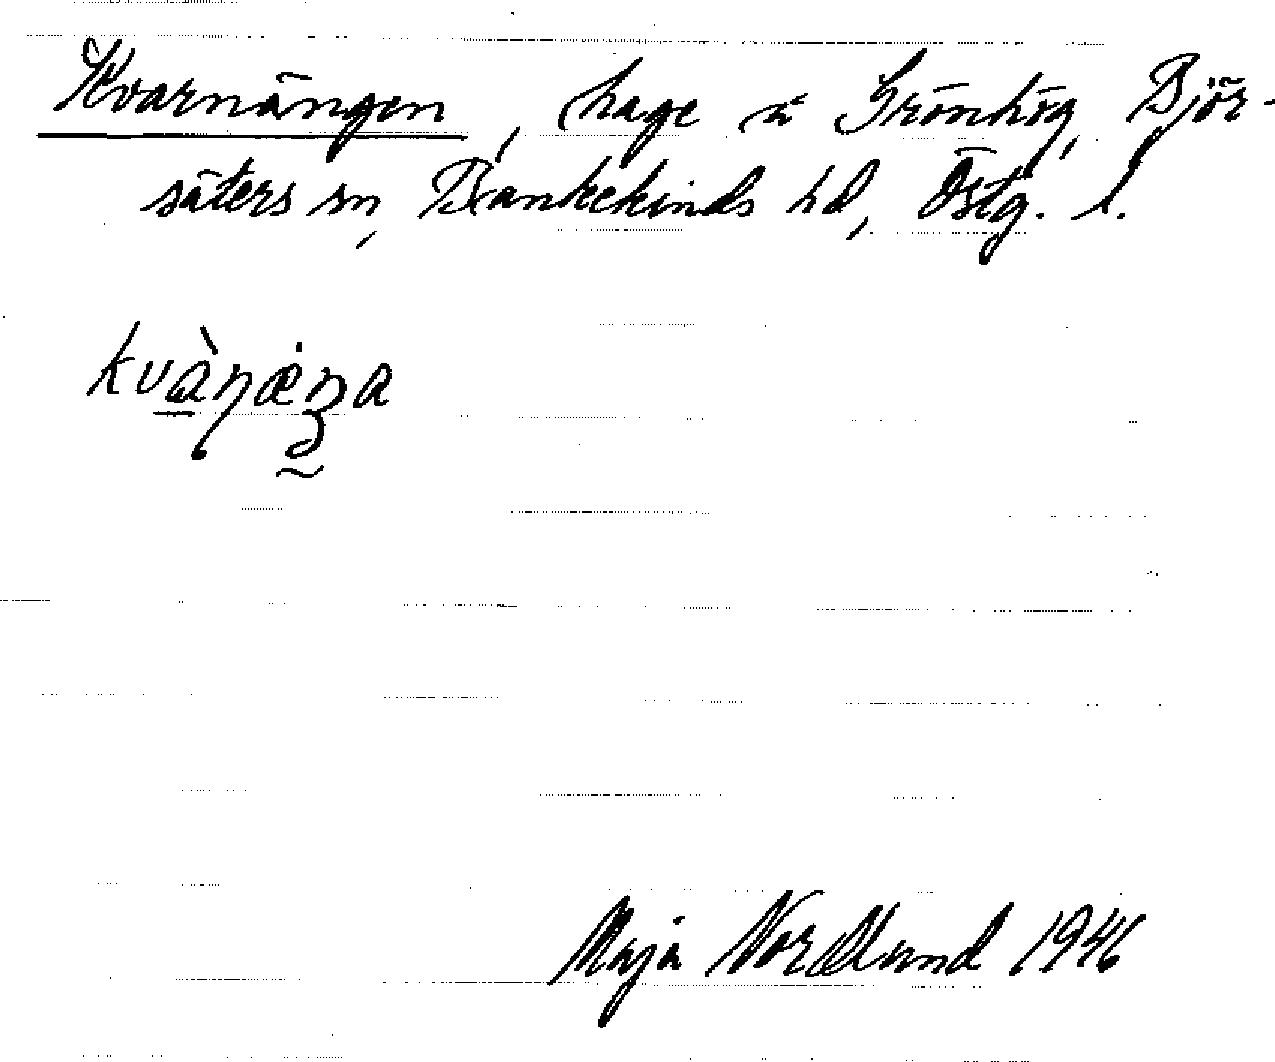 Kvarnängen, hage å Grönhög, Björ-
säters sn, Bankekinds hd, Östg. l.
Maja Nordlund 1946